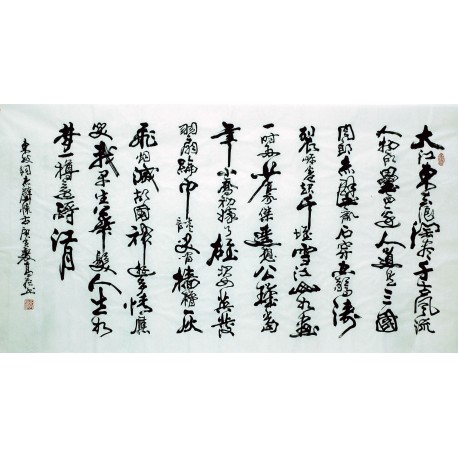 大江東去浪淘盡千古風流
人物故壘西邊人道是三國
周郎赤壁亂石穿空驚濤
裂岸捲起千堆雪江山如畫
一時多少豪傑遙想公瑾當
年小喬初嫁了雄姿英發
羽扇綸巾談笑間檣櫓灰
飛烟滅故國神遊多情應
笑我早生華髮人生如
夢一樽還酹江月
東坡詞赤壁懷古